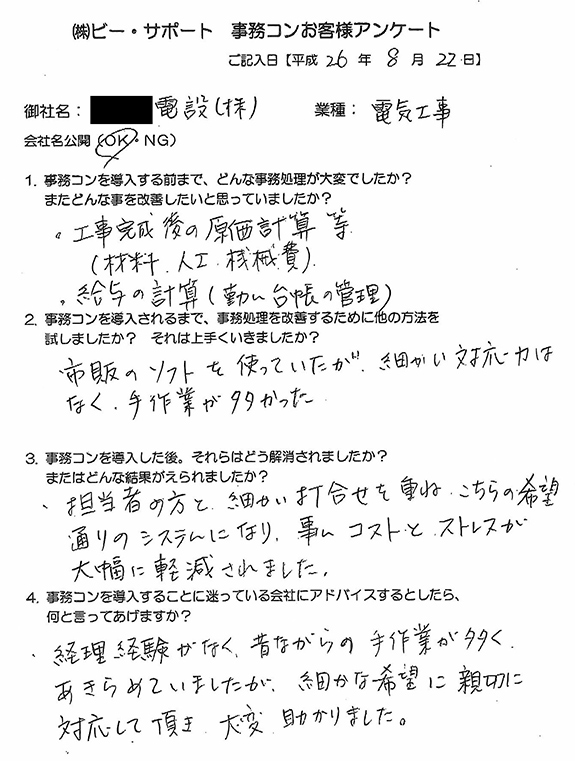 ㈱ビー・サポート 事務コンお客様アンケート
ご記入日【平成 26 年 8 月 22 日】
御社名： 電設(株) 業種： 電気工事
会社名公開（OK・NG）
1. 事務コンを導入する前まで、どんな事務処理が大変でしたか？
またどんな事を改善したいと思っていましたか？
。工事完成後の原価計算 等
(材料、人工、機械費)
。給与の計算(勤ム台帳の管理)
2. 事務コンを導入されるまで、事務処理を改善するために他の方法を
試しましたか？ それは上手くいきましたか？
市販のソフトを使っていたが、細かい対応力は
なく、手作業が多かった
3. 事務コンを導入した後。それらはどう解消されましたか？
またはどんな結果がえられましたか？
、担当者の方と、細かい打合せを重ね、こちらの希望
通りのシステムになり、事ムコストとストレスが
大幅に軽減されました。
4. 事務コンを導入することに迷っている会社にアドバイスするとしたら、
何と言ってあげますか？
、経理経験がなく、昔ながらの手作業が多く、
あきらめていましたが、細かな希望に親切に
対応して頂き、大変助かりました。